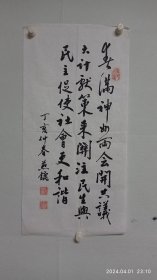 春满神州两会开共议
大计献策来关注民生与
民主促使社会更和谐
丁亥仲春
2024.04.01 23:14